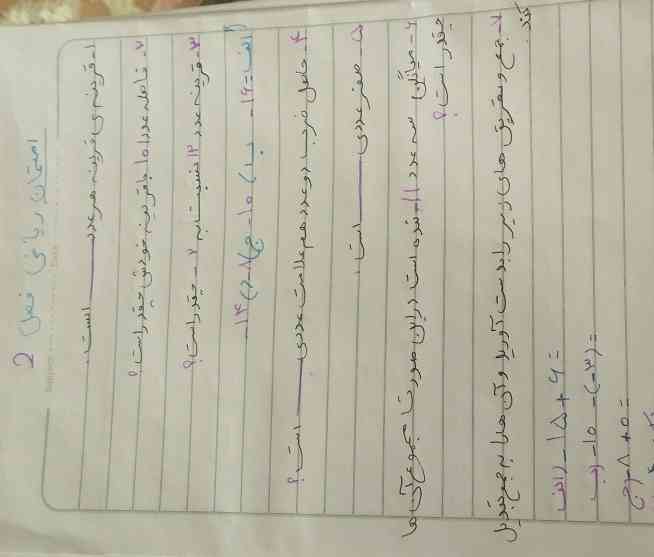 امتحان ریاضی فصل 2
۱- قرینه ی قرینه هر عدد ______ است.
۲- فاصله عدد ۱۵ با قرینه خودش چقدر است؟
۳- قرینه عدد ۱۲ نسبت به ۲- چقدر است؟
الف) ۱۶- ب) ۱۰- ج) ۸- د) ۱۴-
۴- حاصل ضرب دو عدد هم علامت عددی ______ است؟
۵- صفر عددی ______ است.
۶- میانگین سه عدد ۱۱- شده است در این صورت مجموع آن ها
چقدر است؟
۷- جمع و تفریق های زیر را بدست آورید و آن ها را به جمع تبدیل
کنید.
الف) -۱۵+۶=
ب) -۱۰-(-۳)=
ج) -۸+۵=